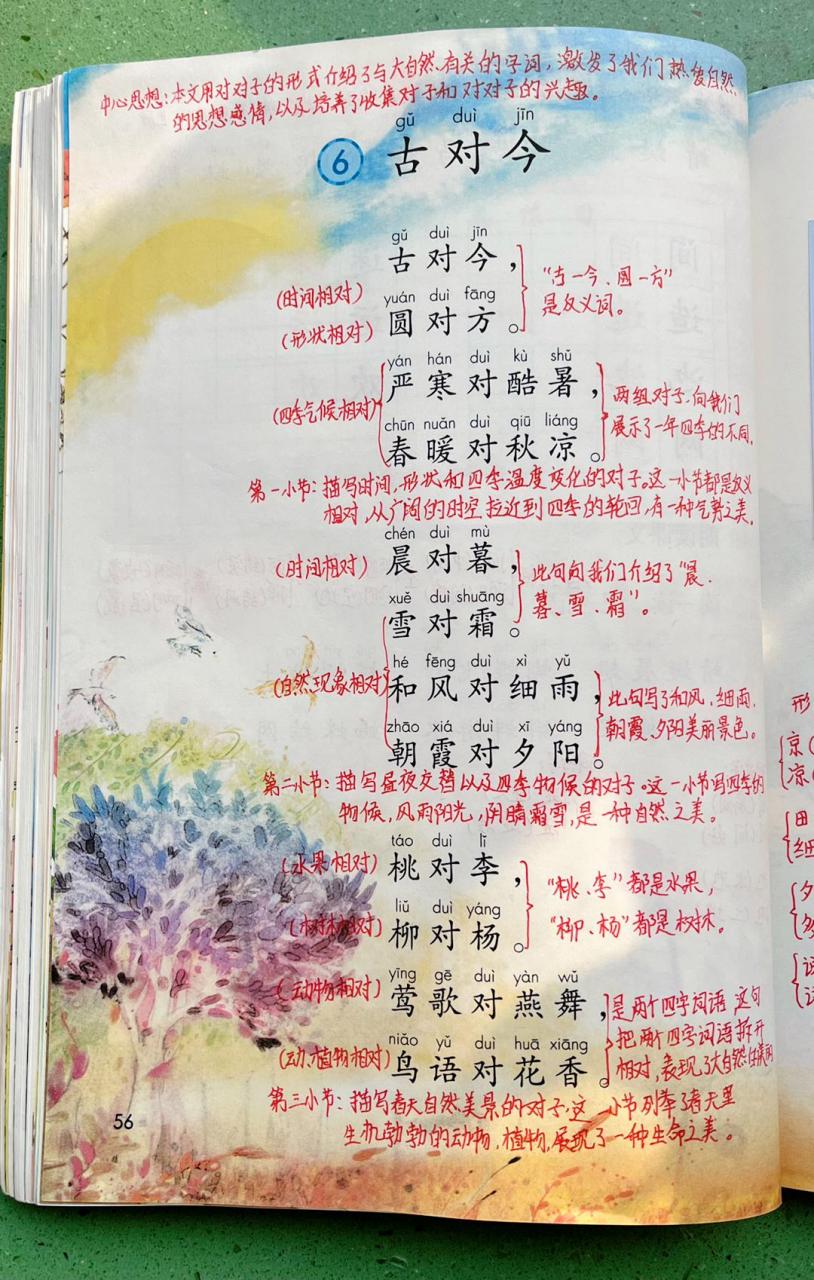 中心思想:本文用对对子的形式介绍了与大自然有关的字词,激发了我们热爱自然
的思想感情,以及培养了收集对子和对对子的兴趣。
gǔ duì jīn
6 古对今
gǔ duì jīn
古对今,
(时间相对)
"古一今、圆一方"
是反义词。
yuán duì fāng
圆对方。
(形状相对)
yán hán duì kù shǔ
严寒对酷暑,
(四季气候相对)
两组对子,向我们
展示了一年四季的不同。
chūn nuǎn duì qiū liáng
春暖对秋凉。
第一小节:描写时间,形状和四季温度变化的对子。这一小节都是反义
相对,从广阔的时空拉近到四季的轮回,有一种气势之美。
chén duì mù
晨对暮,
(时间相对)
此句向我们介绍了"晨、
暮、雪、霜"。
xuě duì shuāng
雪对霜。
hé fēng duì xì yǔ
和风对细雨,
(自然现象相对)
此句写了和风、细雨、
朝霞、夕阳美丽景色。
zhāo xiá duì xī yáng
朝霞对夕阳。
第二小节:描写昼夜交替以及四季物候的对子。这一小节写四季的
物候,风雨阳光,阴晴霜雪,是一种自然之美。
táo duì lǐ
桃对李,
(水果相对)
"桃、李"都是水果,
"柳、杨"都是树木。
liǔ duì yáng
柳对杨。
(树木相对)
yīng gē duì yàn wǔ
莺歌对燕舞,
(动物相对)
是两个四字词语,这句
把两个四字词语拆开
相对,表现了大自然的美丽
niǎo yǔ duì huā xiāng
鸟语对花香。
(动、植物相对)
第三小节:描写春天自然美景的对子,这一小节列举了春天里
生机勃勃的动物,植物,展现了一种生命之美。
56
形
京(
凉(
田
细
夕